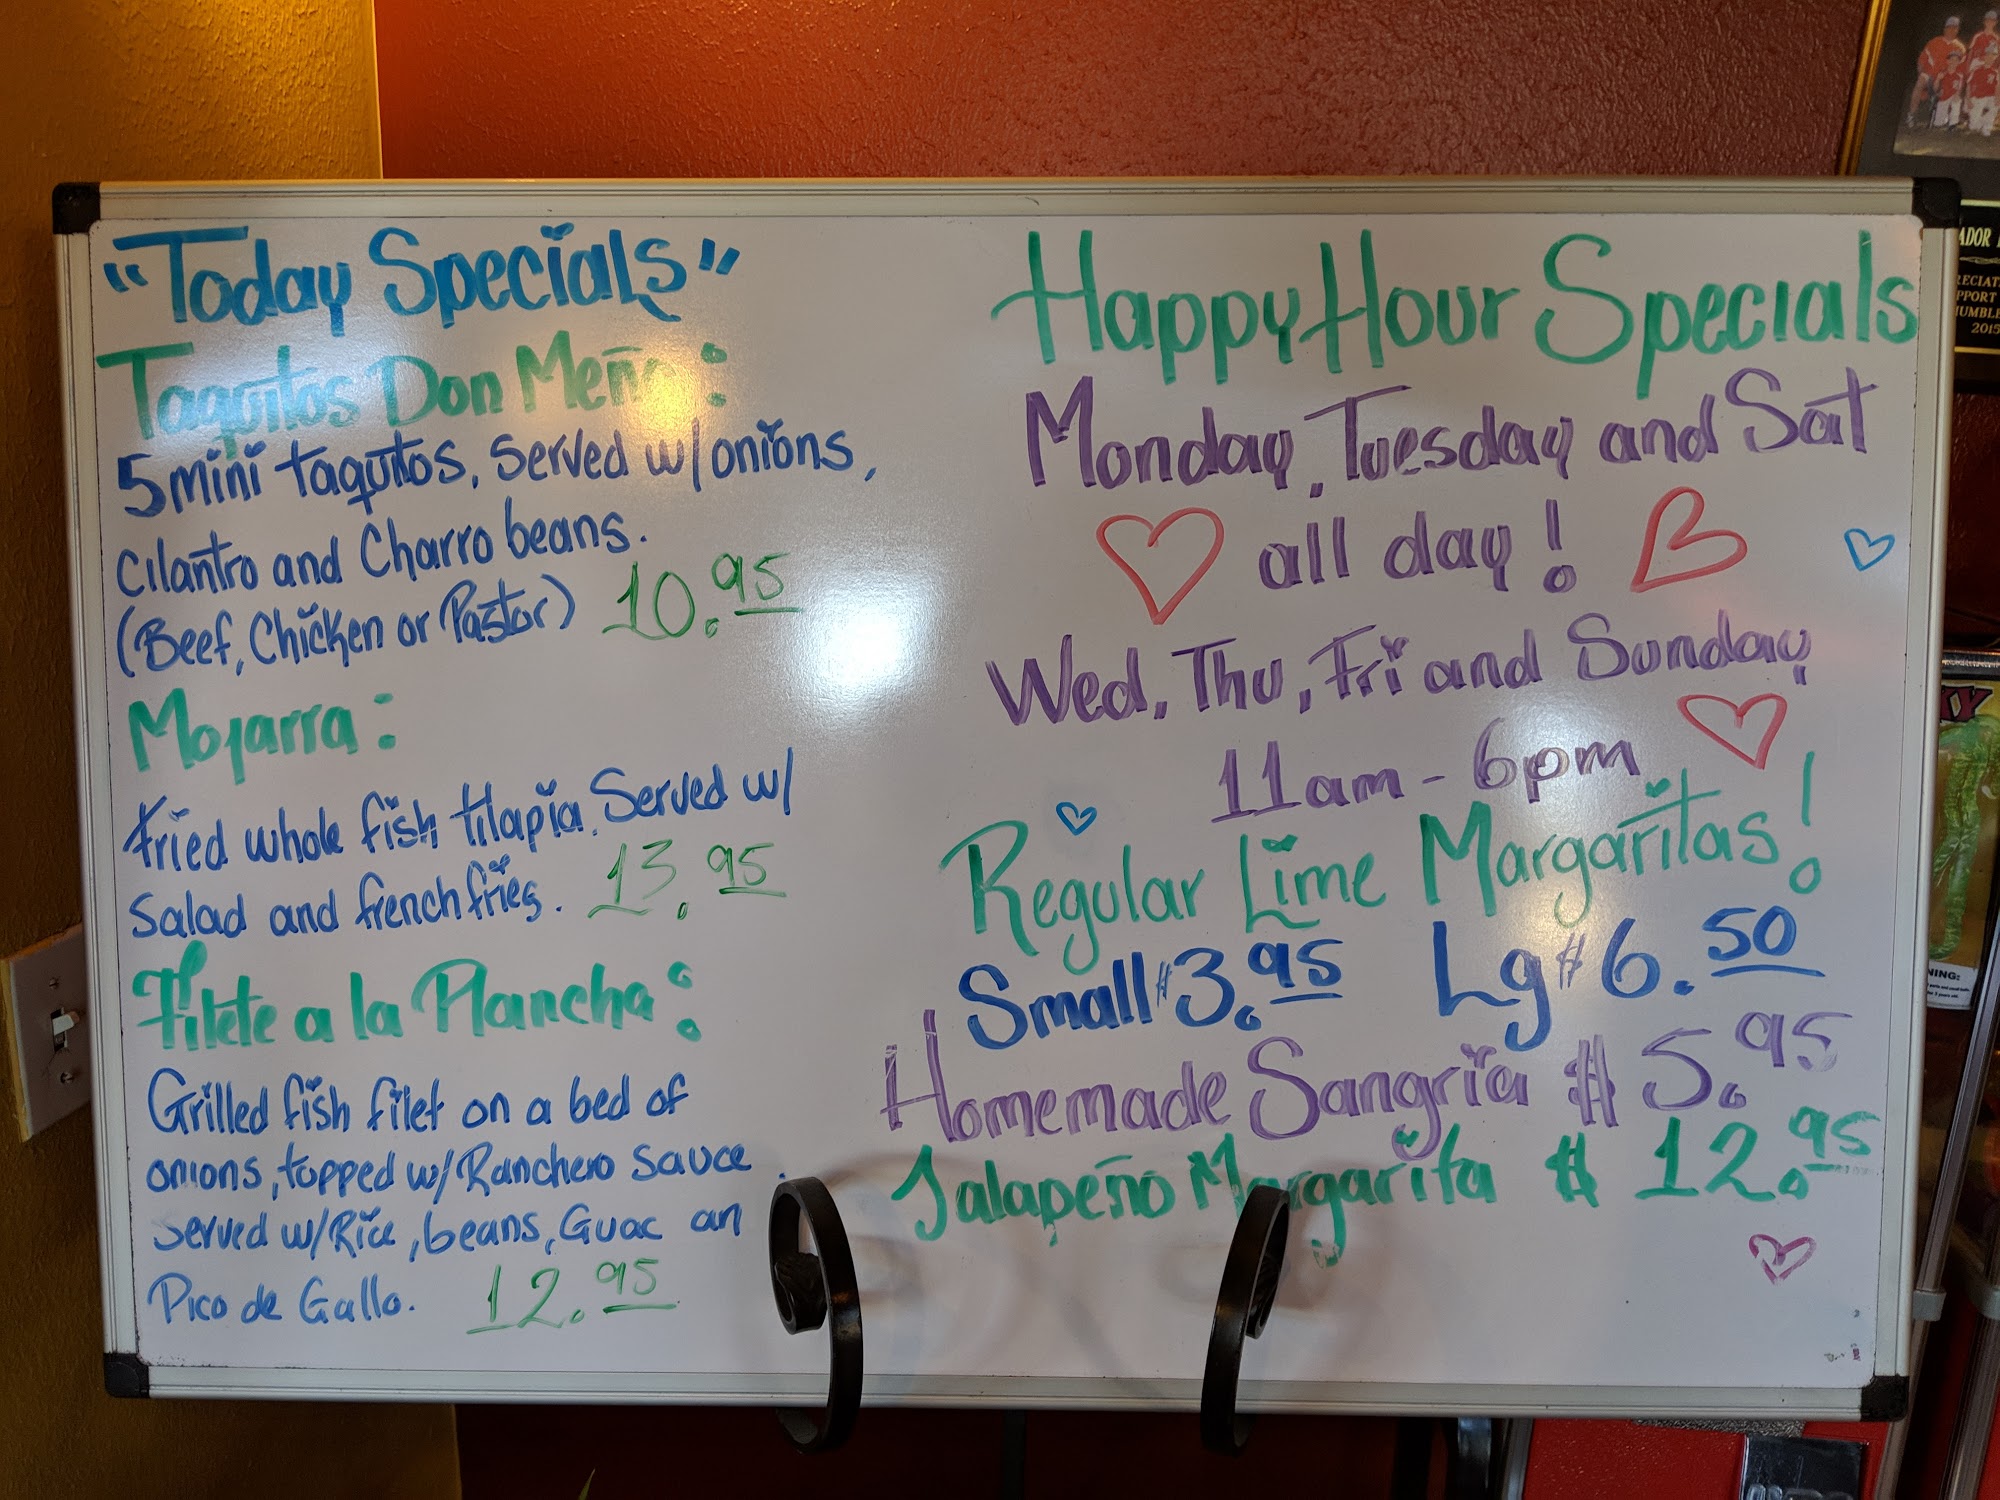 "Today Specials"
Taquitos Don Meño:
5 mini taquitos, served w/onions,
cilantro and Charro beans.
(Beef, Chicken or Pastor) 10.95
Mojarra:
Fried whole fish tilapia. Served w/
Salad and french fries. 13.95
Filete a la Plancha:
Grilled fish filet on a bed of
onions, topped w/Ranchero sauce.
served w/Rice, beans, Guac an
Pico de Gallo. 12.95
Happy Hour Specials
Monday, Tuesday and Sat
all day!
Wed, Thu, Fri and Sunday
11am - 6pm
Regular Lime Margaritas!
Small $3.95 Lg $6.50
Homemade Sangria $5.95
Jalapeño Margarita $12.95
2015